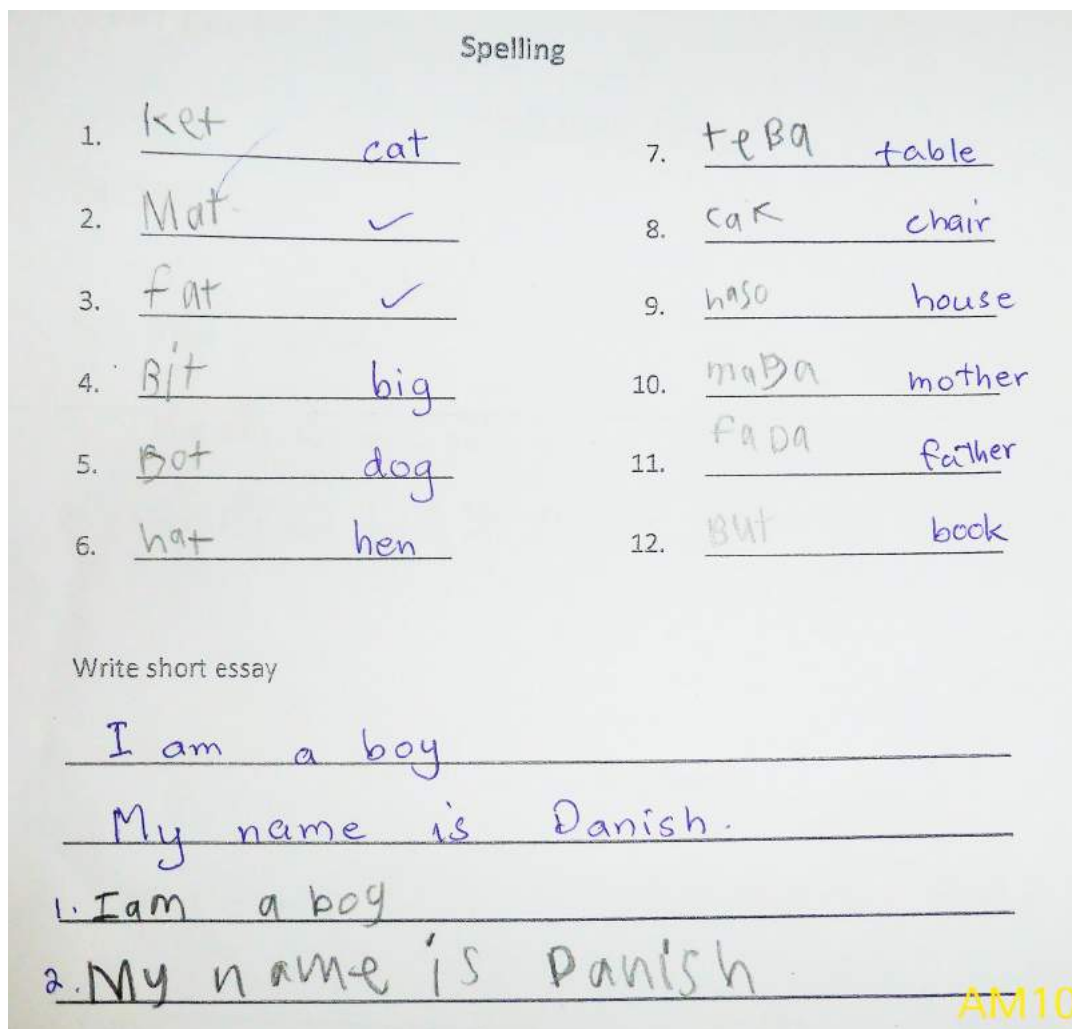 Spelling
1. Ket cat
2. Mat ✓
3. fat ✓
4. Bit big
5. Bot dog
6. hat hen
7. teBa table
8. cak chair
9. haso house
10. maBa mother
11. FaDa father
12. But book
Write short essay
I am a boy
My name is Danish.
1. I am a boy
2. My name is Danish
AM10